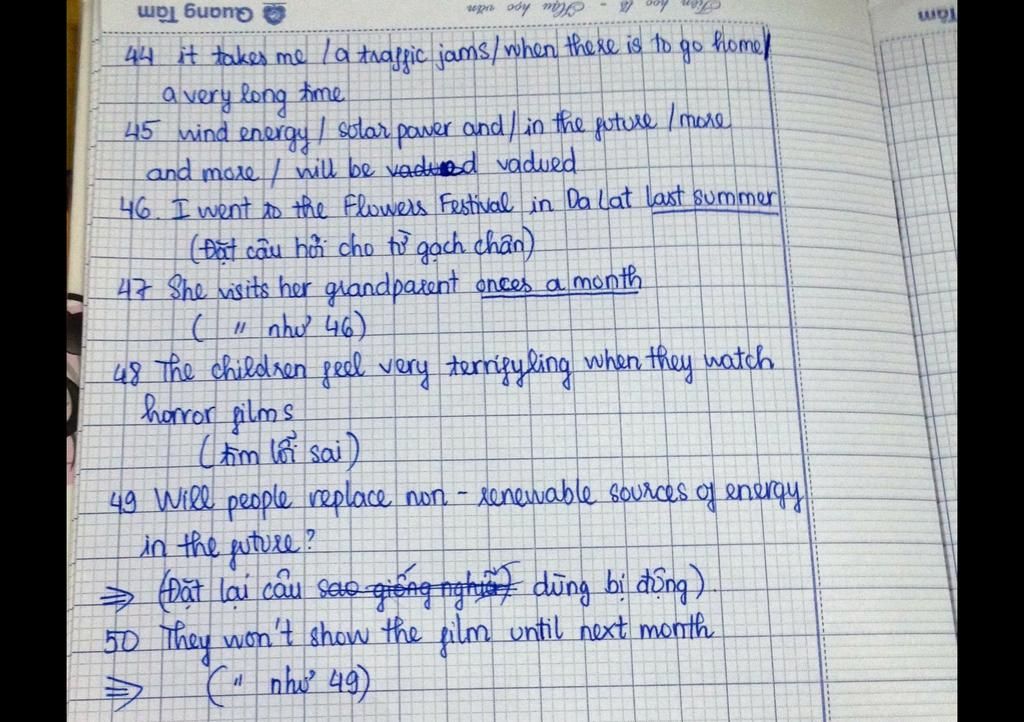 Quang Tâm
44 it takes me / a traffic jams / when there is to go home /
a very long time
45 wind energy / solar power and / in the future / more
and more / will be vadued vadued
46. I went to the Flowers Festival in Da Lat last summer
(Đặt câu hỏi cho từ gạch chân)
47 She visits her grandparent onces a month
( " như 46)
48 The children feel very terrifyling when they watch
horror films
(tìm lỗi sai)
49 Will people replace non-renewable sources of energy
in the future?
⇒ (Đặt lại câu sao giống nghĩa) dùng bị động).
50 They won't show the film until next month
⇒ ( " như 49)